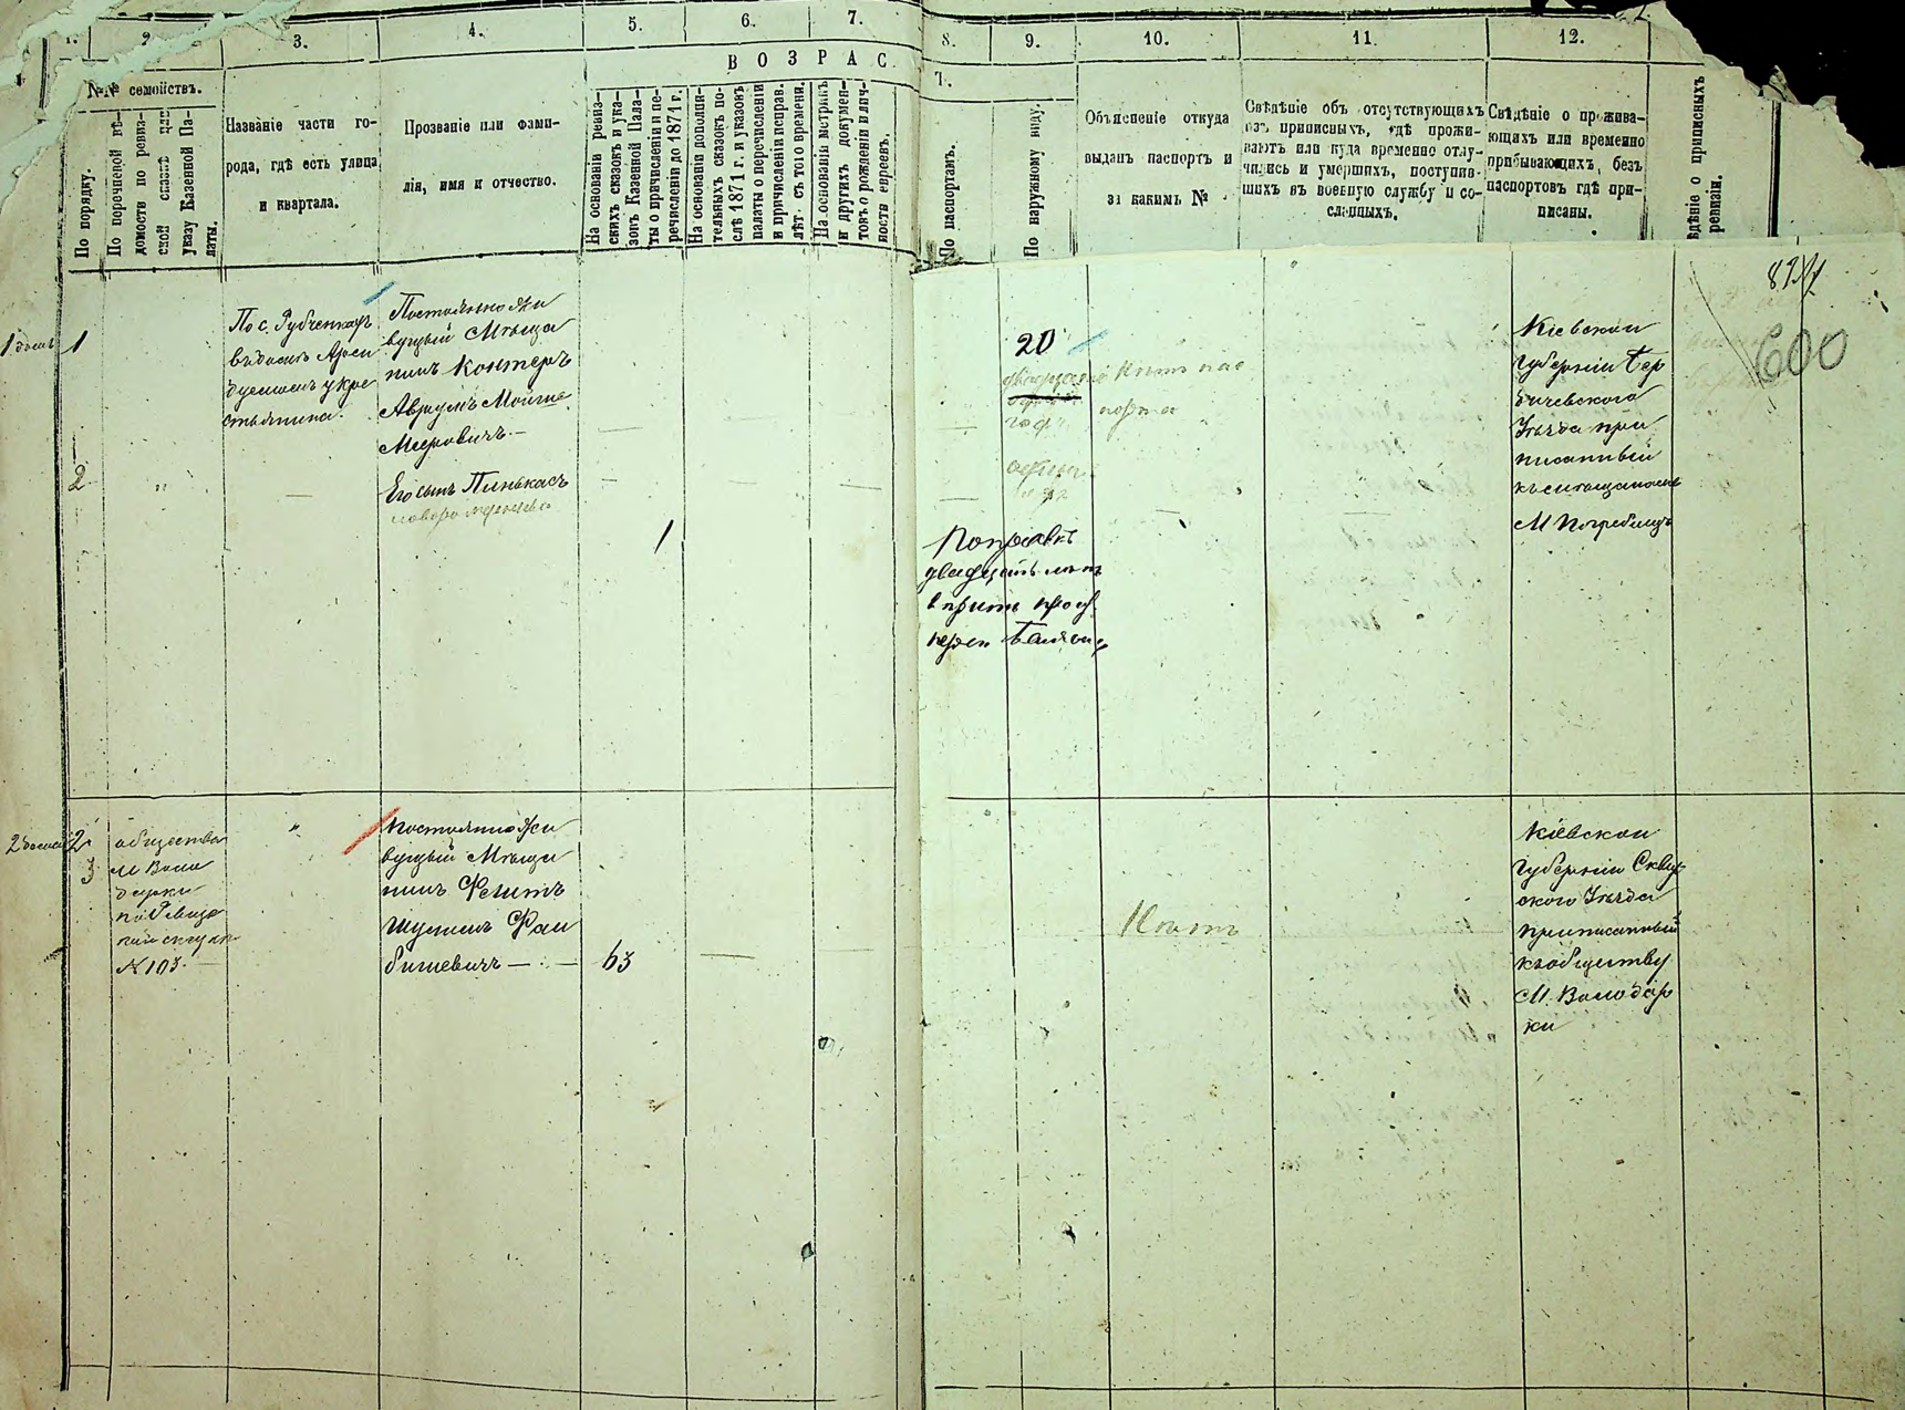 1. 2 3. 4. 5. 6. 7. 8. 9. 10. 11. 12.
ВОЗРАС
Т.
№№ семействъ.
По порядку.
По перечневой вѣ-
домости по ревиз-
ской сказкѣ или
указу Казенной Па-
латы.
Названіе части го-
рода, гдѣ есть улица
и квартала.
Прозваніе или фами-
лія, имя и отчество.
На основаніи ревиз-
скихъ сказокъ и ука-
зовъ Казенной Пала-
ты о причисленіи и пе-
речисленіи до 1871 г.
На основаніи дополни-
тельныхъ сказокъ по-
слѣ 1871 г. и указовъ
палаты о перечисленіи
и причисленіи исправ.
лѣт. съ того времени.
На основаніи метрикъ
и другихъ докумен-
товъ о рожденіи и лич-
ности евреевъ.
По паспортамъ.
По наружному виду.
Объясненіе откуда
выданъ паспортъ и
за какимъ №
Свѣдѣніе объ отсутствующихъ
изъ приписныхъ, гдѣ прожи-
ваютъ или куда временно отлу-
чились и умершихъ, поступив-
шихъ въ военную службу и со-
сланныхъ.
Свѣдѣніе о прожива-
ющихъ или временно
прибывающихъ, безъ
паспортовъ гдѣ при-
писаны.
ѣдѣніе о приписныхъ
ревизіи.
600
1 домъ 1
По с. Рубченкахъ
въ домѣ
у кре
стьянина.
Постоянно жи
вущый Мѣща
нинъ Контеръ
Аврумъ Мойше
Мееровичъ.
20
двадцать
годъ
Нѣтъ пас
порта
Кіевской
Губерніи Бер
дичевского
Уѣзда при
писанный
къ
М Погребищъ
2 "
Его сынъ Пинькасъ
новорожденный
одинъ
1
Поправкѣ
двадцать лѣтъ
вѣрить
2 домъ 2
3
общества
м Воло
дарки
по Ревизс
кой сказкѣ
№ 103.
"
Постоянно жи
вущый Мѣща
нинъ
Шулимъ Фаи
бишевичъ
63
Нѣтъ
Кіевской
Губерніи Сквир
ского Уѣзда
приписанный
къ обществу
М. Володар
ки